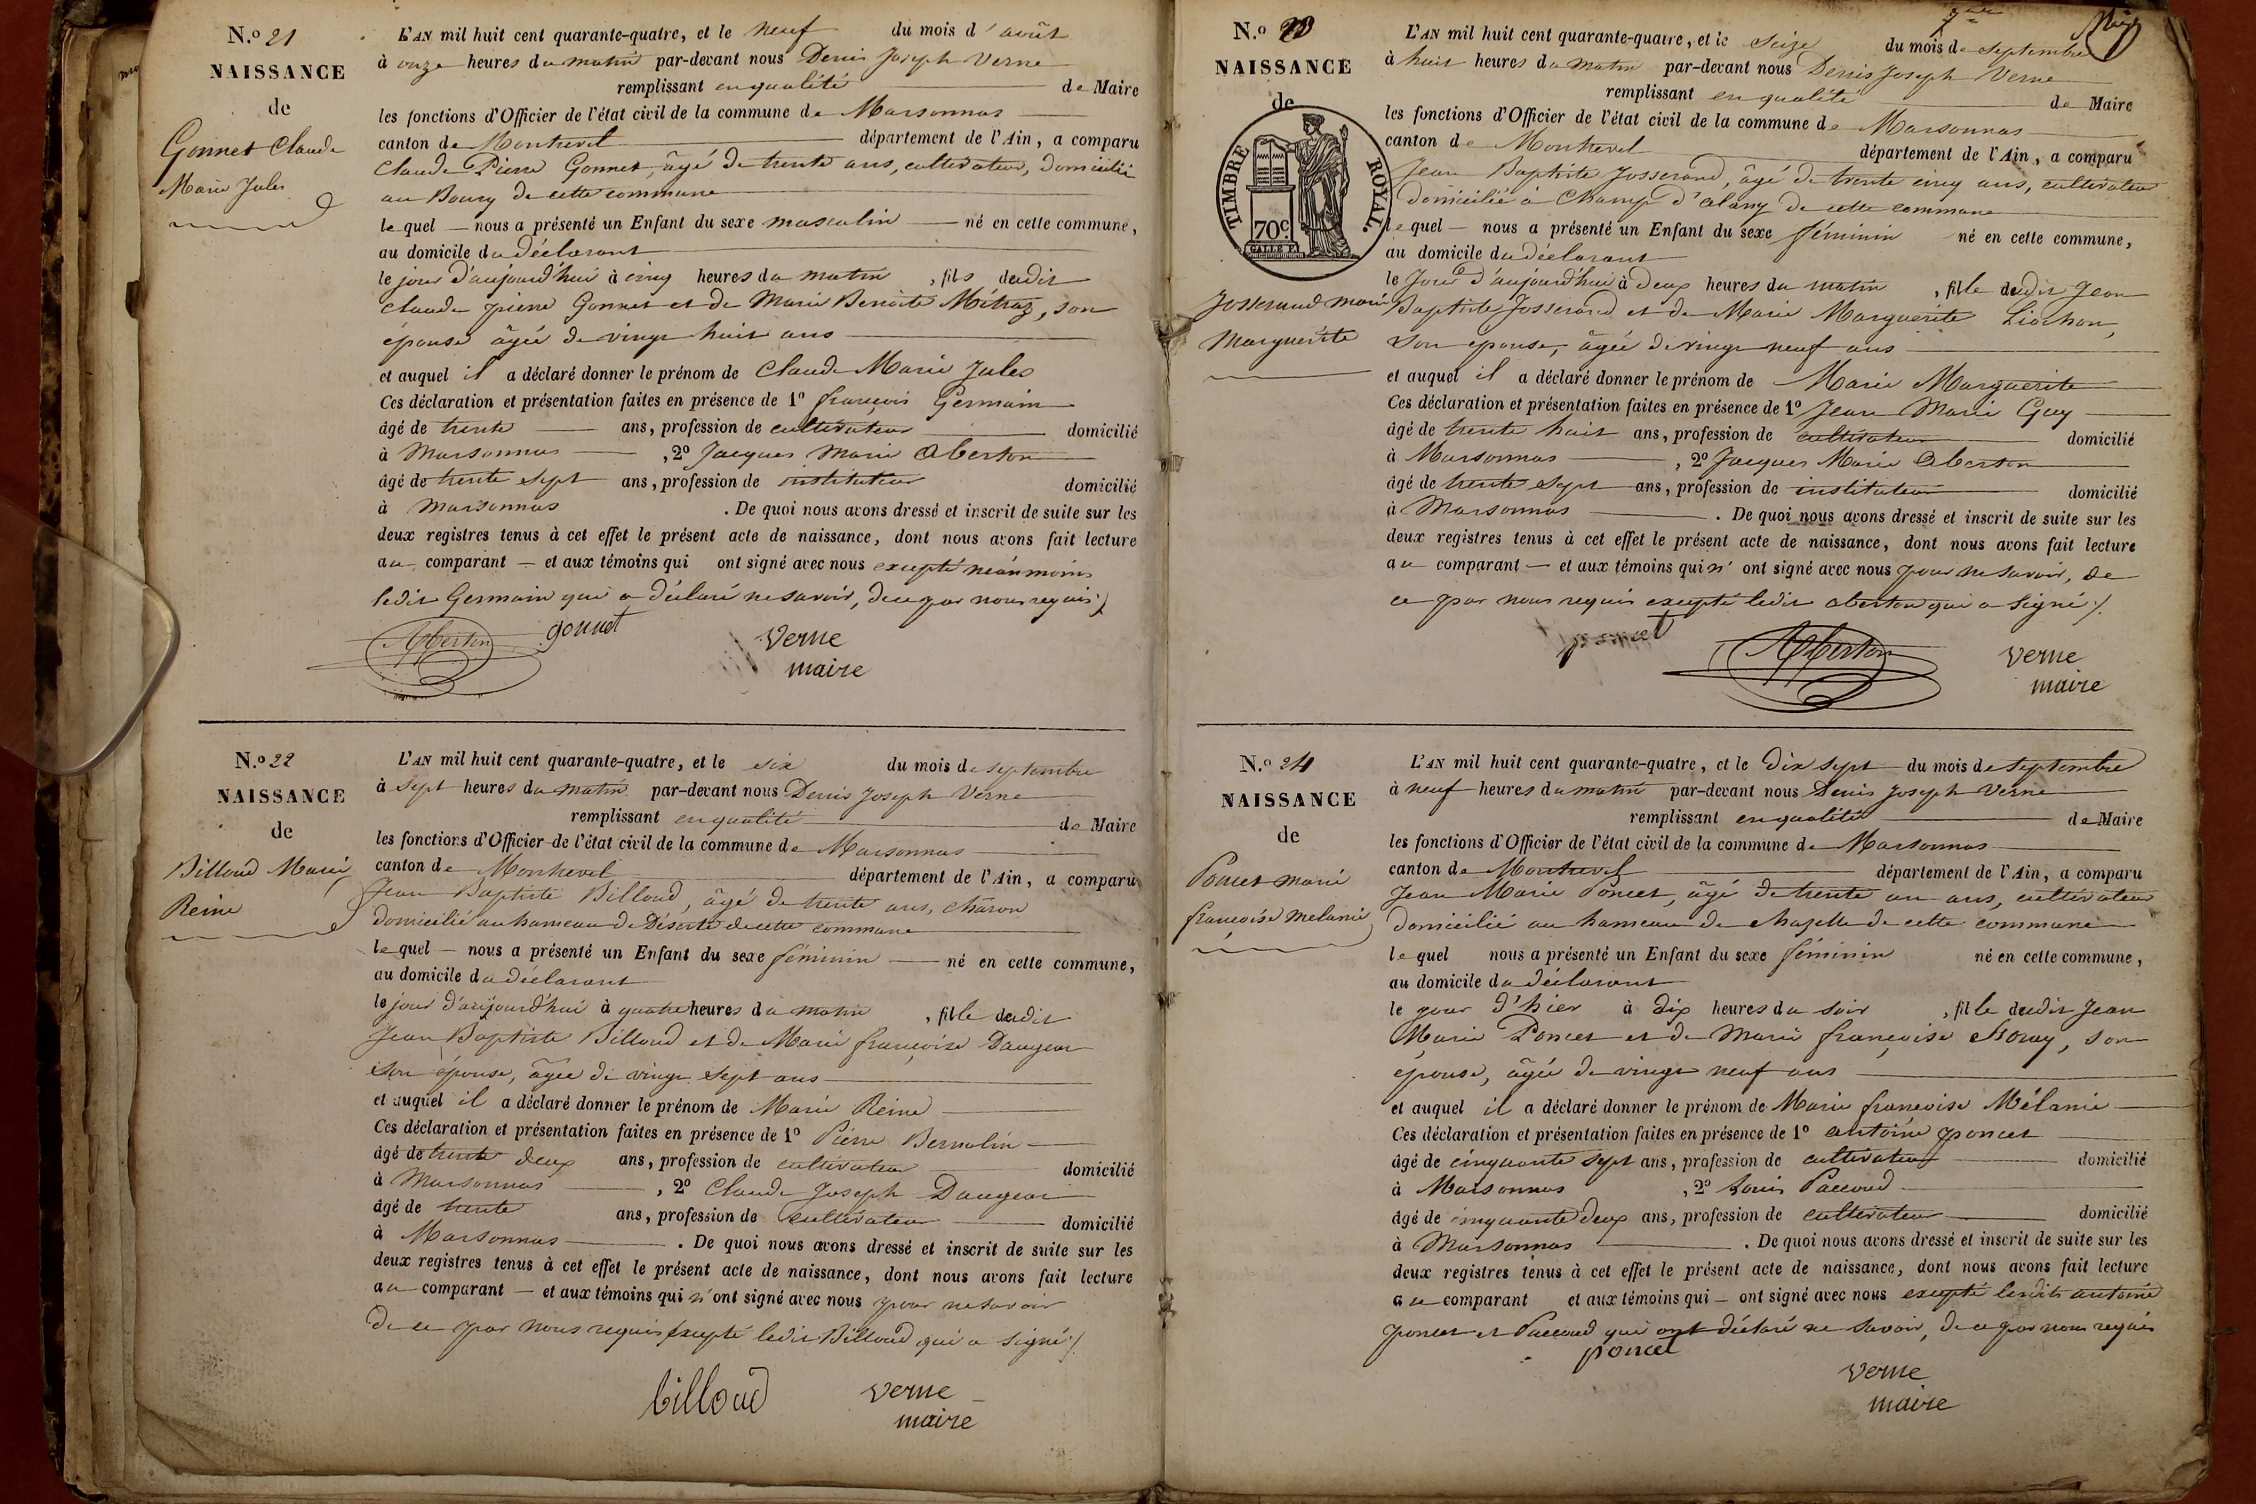 N.º 21
NAISSANCE
de
Gonnet Claude
Marie Jules
L'AN mil huit cent quarante-quatre, et le neuf du mois d'août
à onze heures du matin par-devant nous Denis Joseph Verne
remplissant en qualité de Maire
les fonctions d'Officier de l'état civil de la commune de Marsonnas
canton de Montrevel département de l'Ain, a comparu
Claude Pierre Gonnet, âgé de trente ans, cultivateur, domicilié
au Bourg de cette commune
lequel nous a présenté un Enfant du sexe masculin né en cette commune,
au domicile du déclarant
le jour d'aujourd'hui à cinq heures du matin, fils dudit
Claude pierre Gonnet et de Marie Benoite Métraz, son
épouse âgée de vingt huit ans
et auquel il a déclaré donner le prénom de Claude Marie Jules
Ces déclaration et présentation faites en présence de 1º françois Germain
âgé de trente ans, profession de cultivateur domicilié
à Marsonnas, 2º Jacques Marie Aberton
âgé de trente sept ans, profession de instituteur domicilié
à Marsonnas. De quoi nous avons dressé et inscrit de suite sur les
deux registres tenus à cet effet le présent acte de naissance, dont nous avons fait lecture
au comparant et aux témoins qui ont signé avec nous excepté néanmoins
ledit Germain qui a déclaré ne savoir, de ce par nous requis
Aberton gonnet Verne
maire
N.º 22
NAISSANCE
de
Billoud Marie
Reine
L'AN mil huit cent quarante-quatre, et le six du mois de septembre
à sept heures du matin par-devant nous Denis Joseph Verne
remplissant en qualité de Maire
les fonctions d'Officier de l'état civil de la commune de Marsonnas
canton de Montrevel département de l'Ain, a comparu
Jean Baptiste Billoud, âgé de trente ans, charon
domicilié au hameau de Déserte de cette commune
lequel nous a présenté un Enfant du sexe féminin né en cette commune,
au domicile du déclarant
le jour d'aujourd'hui à quatre heures du matin, fille dudit
Jean Baptiste Billoud et de Marie françoise Daugeur
son épouse, âgée de vingt sept ans
et auquel il a déclaré donner le prénom de Marie Reine
Ces déclaration et présentation faites en présence de 1º Pierre Bernolin
âgé de trente deux ans, profession de cultivateur domicilié
à Marsonnas, 2º Claude Joseph Daugeur
âgé de trente ans, profession de cultivateur domicilié
à Marsonnas. De quoi nous avons dressé et inscrit de suite sur les
deux registres tenus à cet effet le présent acte de naissance, dont nous avons fait lecture
au comparant et aux témoins qui n'ont signé avec nous pour ne savoir
de ce par nous requis excepté ledit Billoud qui a signé
billoud Verne
maire
N.º
NAISSANCE
de
TIMBRE ROYAL.
70 C.
Josserand Marie
Marguerite
L'AN mil huit cent quarante-quatre, et le seize du mois de septembre
à huit heures du matin par-devant nous Denis Joseph Verne
remplissant en qualité de Maire
les fonctions d'Officier de l'état civil de la commune de Marsonnas
canton de Montrevel département de l'Ain, a comparu
Jean Baptiste Josserand, âgé de trente cinq ans, cultivateur
domicilié à Champ d'alang de cette commune
lequel nous a présenté un Enfant du sexe féminin né en cette commune,
au domicile du déclarant
le Jour d'aujourd'hui à deux heures du matin, fille dudit Jean
Baptiste Josserand et de Marie Marguerite Liochon,
son épouse, âgée de vingt neuf ans
et auquel il a déclaré donner le prénom de Marie Marguerite
Ces déclaration et présentation faites en présence de 1º Jean Marie Guy
âgé de trente huit ans, profession de cultivateur domicilié
à Marsonnas, 2º Jacques Marie Aberton
âgé de trente sept ans, profession de instituteur domicilié
à Marsonnas. De quoi nous avons dressé et inscrit de suite sur les
deux registres tenus à cet effet le présent acte de naissance, dont nous avons fait lecture
au comparant et aux témoins qui n'ont signé avec nous pour ne savoir, de
ce par nous requis excepté ledit Aberton qui a signé
Aberton Verne
maire
N.º 24
NAISSANCE
de
Poncet Marie
françoise Melanie
L'AN mil huit cent quarante-quatre, et le Dix sept du mois de septembre
à neuf heures du matin par-devant nous Denis Joseph Verne
remplissant en qualité de Maire
les fonctions d'Officier de l'état civil de la commune de Marsonnas
canton de Montrevel département de l'Ain, a comparu
Jean Marie Poncet, âgé de trente un ans, cultivateur
domicilié au hameau de chazelle de cette commune
lequel nous a présenté un Enfant du sexe féminin né en cette commune,
au domicile du déclarant
le jour d'hier à dix heures du soir, fille dudit Jean
Marie Poncet et de Marie françoise, son
épouse, âgée de vingt neuf ans
et auquel il a déclaré donner le prénom de Marie françoise Mélanie
Ces déclaration et présentation faites en présence de 1º antoine poncet
âgé de cinquante sept ans, profession de cultivateur domicilié
à Marsonnas, 2º Louis Paccoud
âgé de cinquante deux ans, profession de cultivateur domicilié
à Marsonnas. De quoi nous avons dressé et inscrit de suite sur les
deux registres tenus à cet effet le présent acte de naissance, dont nous avons fait lecture
au comparant et aux témoins qui ont signé avec nous excepté lesdits antoine
poncet et Paccoud qui ont déclaré ne savoir, de ce par nous requis
poncet
Verne
maire